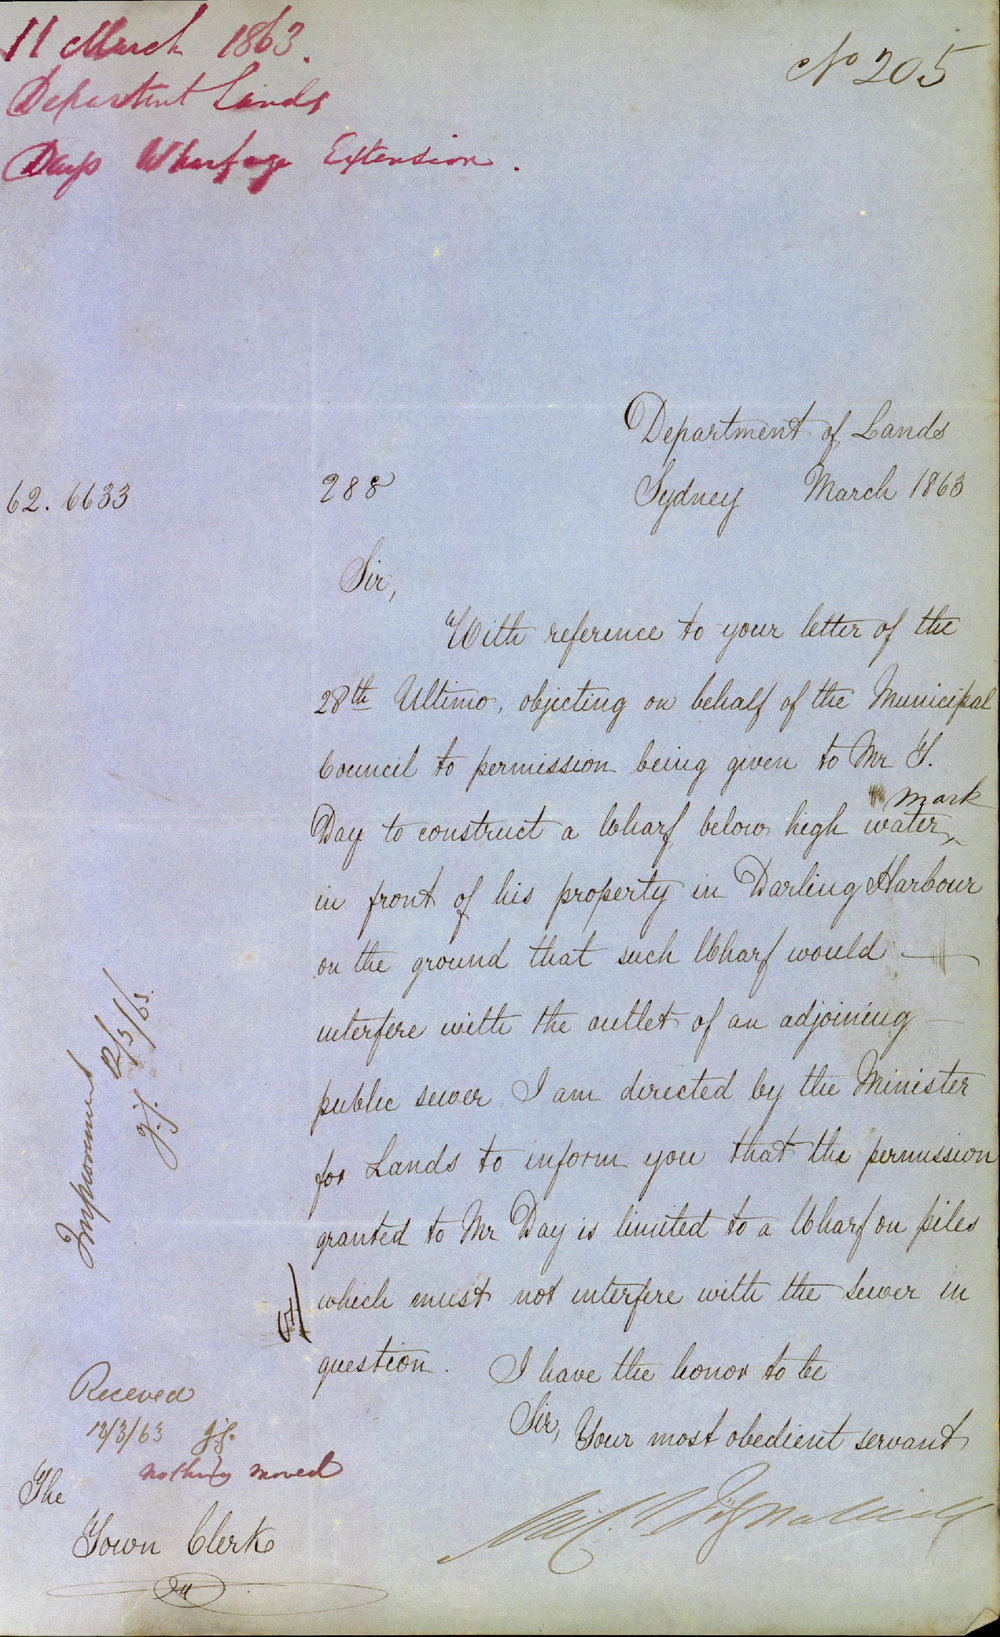 11 March 1863.
Department Lands
Days Wharfage Extension.
No 205
Department of Lands
62. 6633
288
Sydney March 1863
Sir,
With reference to your letter of the
28th Ultimo, objecting on behalf of the Municipal
Council to permission being given to Mr T.
mark
Day to construct a Wharf below high water
in front of his property in Darling Harbour
on the ground that such Wharf would
interfere with the outlet of an adjoining
public sewer, I am directed by the Minister
for Lands to inform you that the permission
granted to Mr Day is limited to a Wharf on piles
which must not interfere with the Sewer in
question.
I have the honor to be
Sir,
Your most obedient servant
Mich. Fitzpatrick
Improvement
12/3/63.
J.J.
Received
12/3/63 J.J.
nothing moved
The
Town Clerk